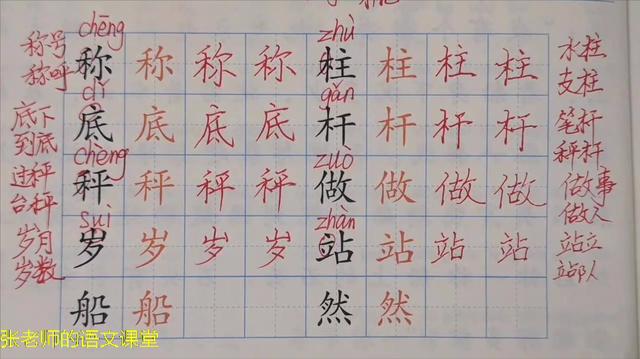 chēng zhù
称号 称 称 称 称 柱 柱 柱 柱 水柱
称呼 支柱
dǐ gǎn
底下 底 底 底 底 杆 杆 杆 杆 笔杆
到底 秤杆
chèng zuò
过秤 秤 秤 秤 秤 做 做 做 做 做事
台秤 做人
suì zhàn
岁月 岁 岁 岁 岁 站 站 站 站 站立
岁数 站队
船 船 然 然
张老师的语文课堂